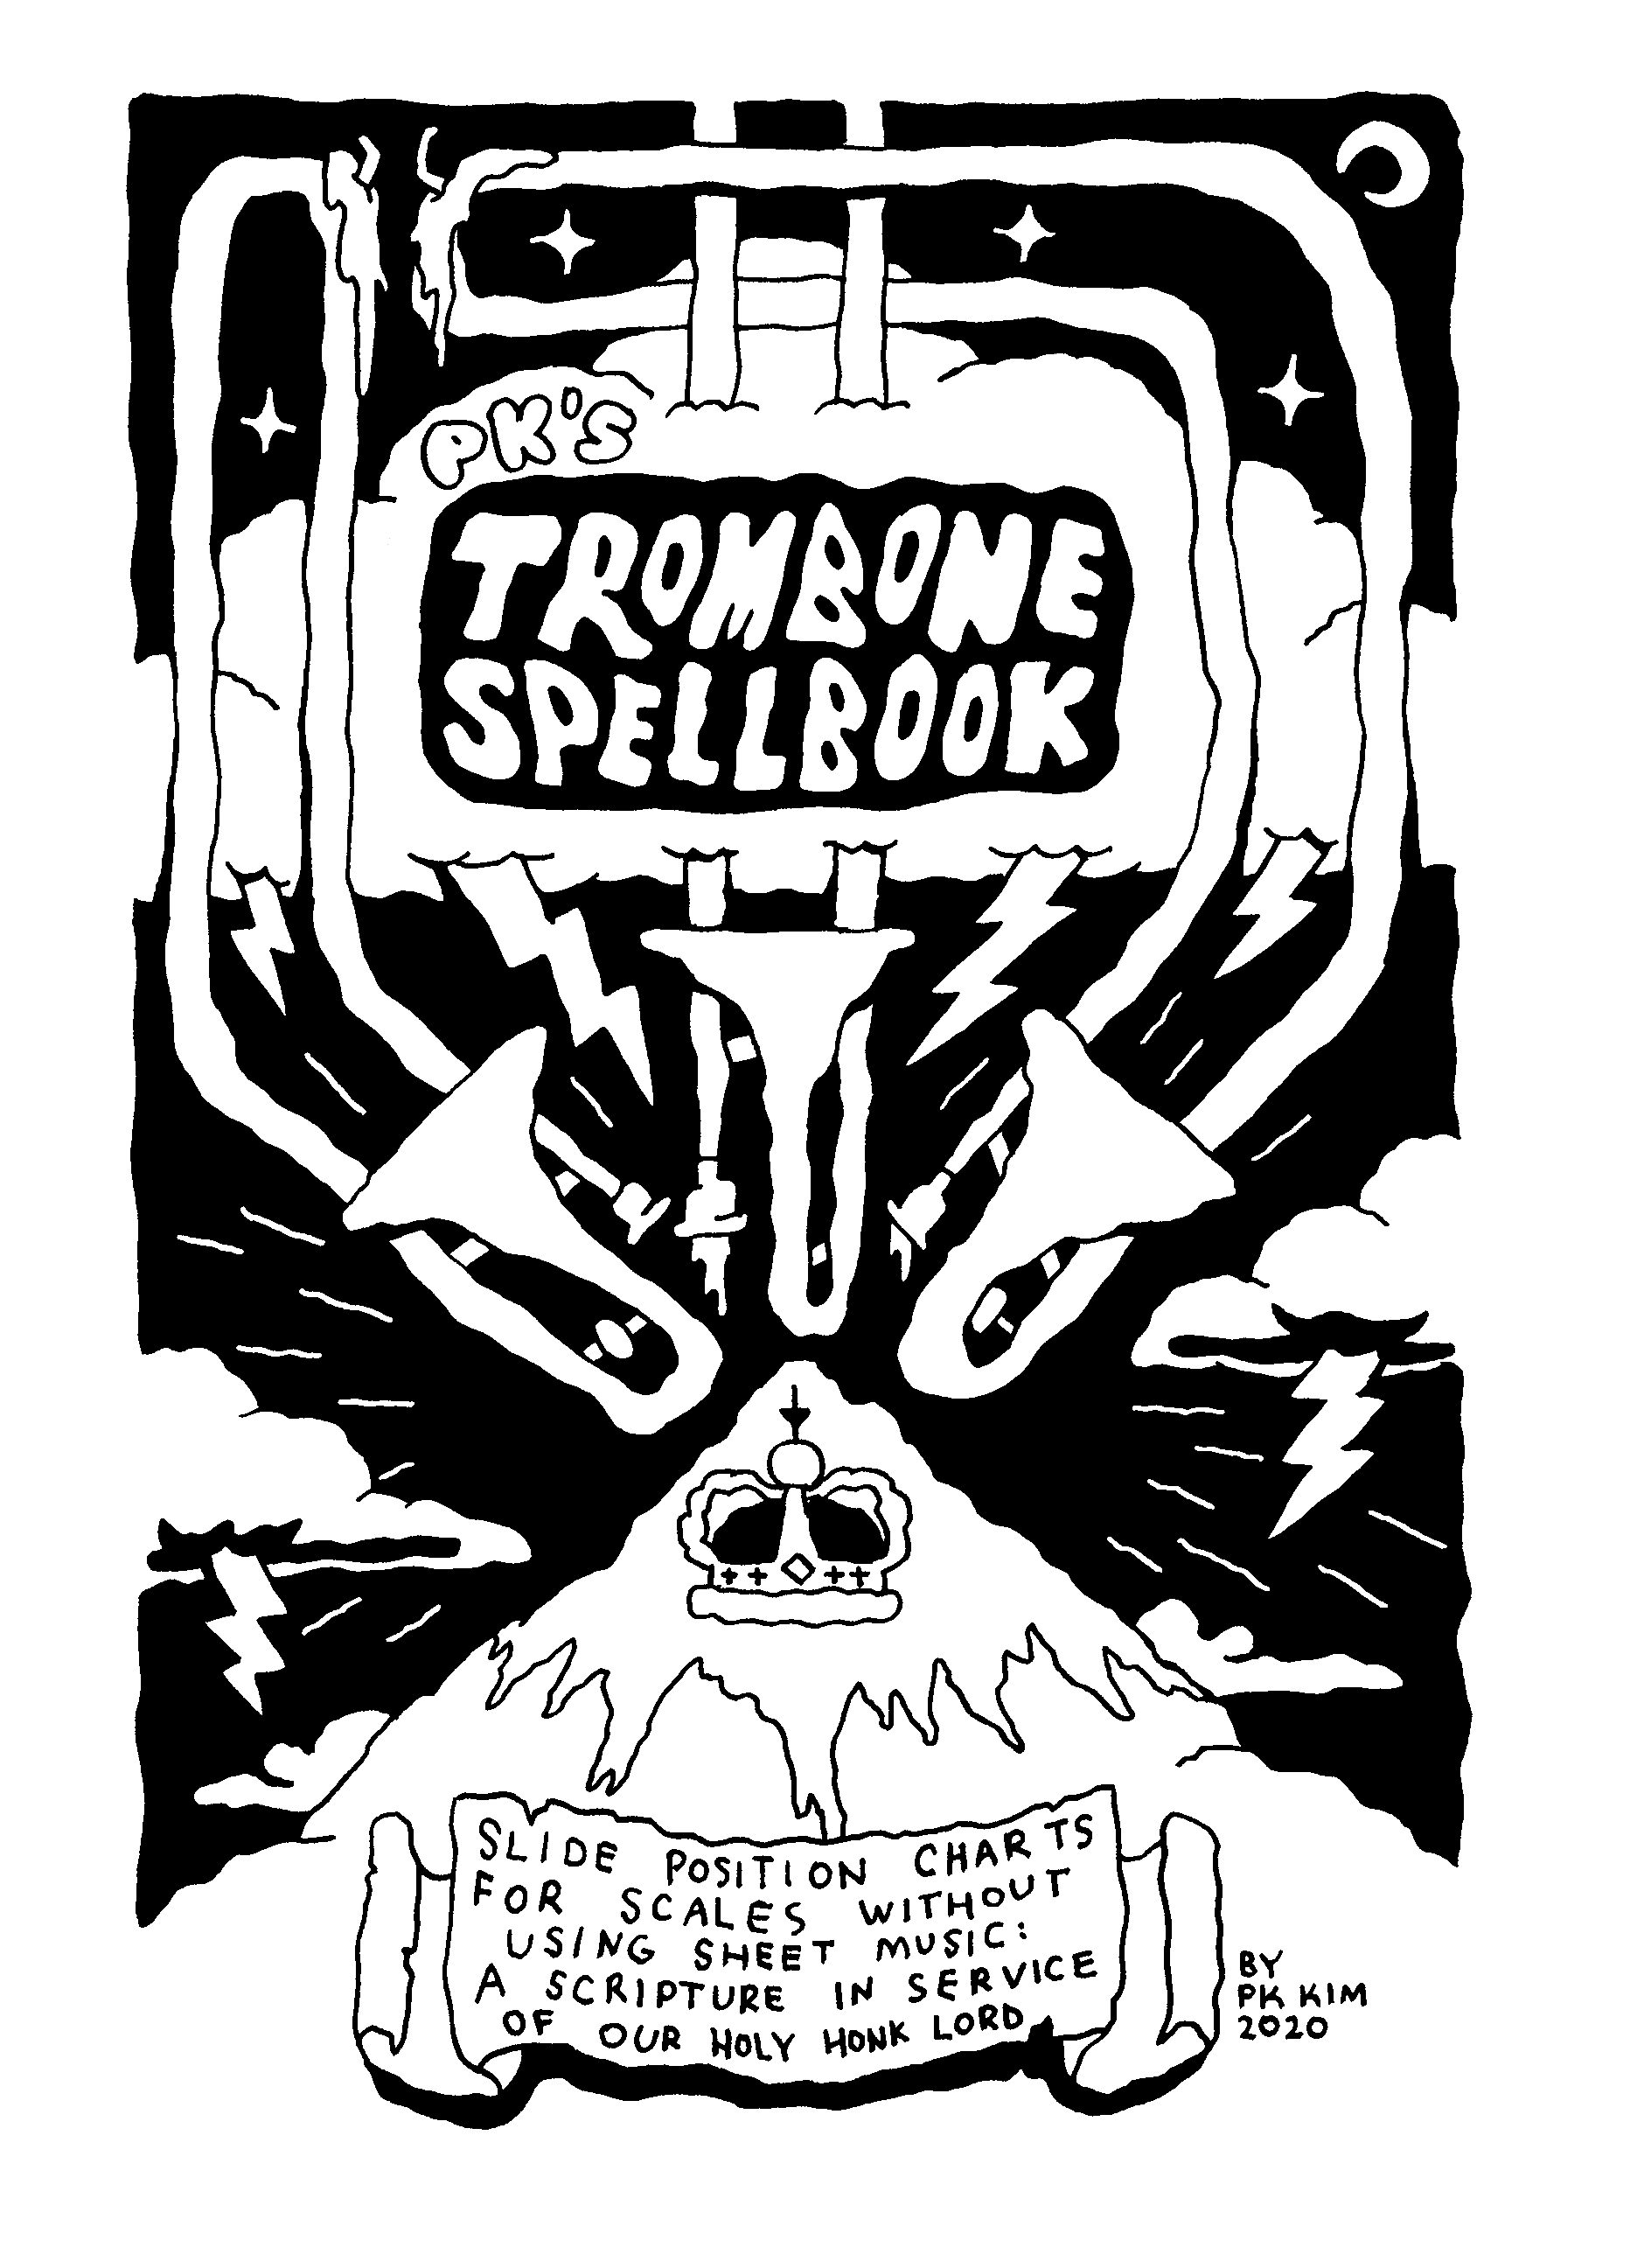 PK'S
TROMBONE
SPELLBOOK
SLIDE POSITION CHARTS
FOR SCALES WITHOUT
USING SHEET MUSIC:
A SCRIPTURE IN SERVICE
OF OUR HOLY HONK LORD
BY
PK KIM
2020